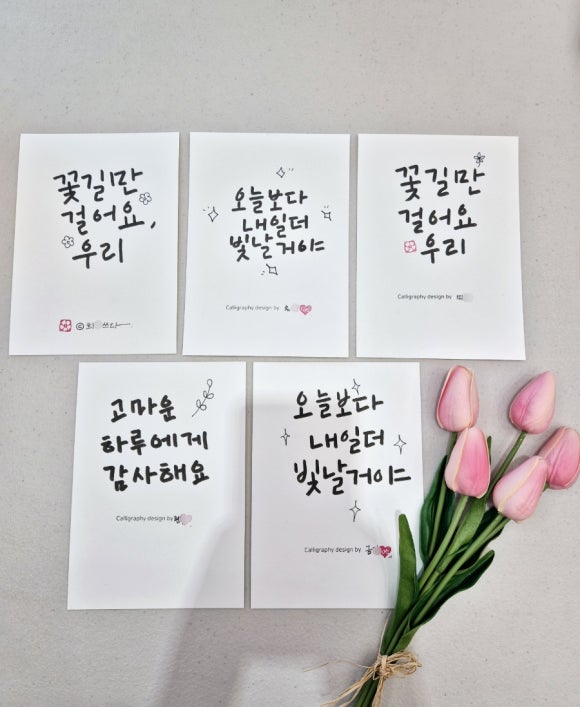 꽃길만
걸어요,
우리
오늘보다
내일더
빛날거야
Calligraphy design by
꽃길만
걸어요
우리
Calligraphy design by
고마운
하루에게
감사해요
Calligraphy design by
오늘보다
내일더
빛날거야
Calligraphy design by